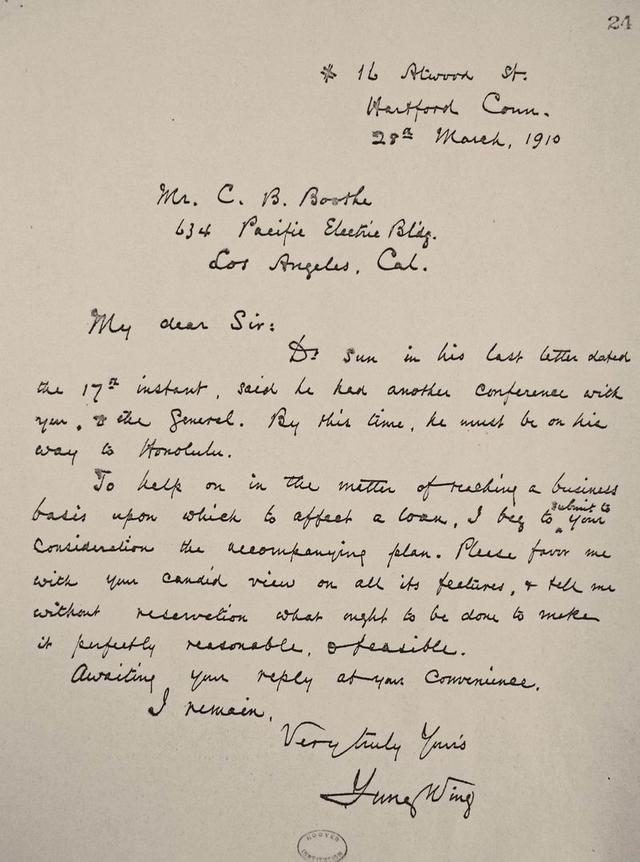 24
* 16 Atwood St.
Hartford Conn.
28th March, 1910
Mr. C. B. Boothe
634 Pacific Electric Bldg.
Los Angeles, Cal.
My dear Sir:
Dr Sun in his last letter dated
the 17th instant, said he had another conference with
you, & the General. By this time, he must be on his
way to Honolulu.
To help on in the matter of reaching a business
basis upon which to affect a loan, I beg to submit to your
consideration the accompanying plan. Please favor me
with your candid view on all its features, & tell me
without reservation what ought to be done to make
it perfectly reasonable, & feasible.
Awaiting your reply at your convenience.
I remain,
Very truly Yours
Yung Wing
HOOVER
INSTITUTION